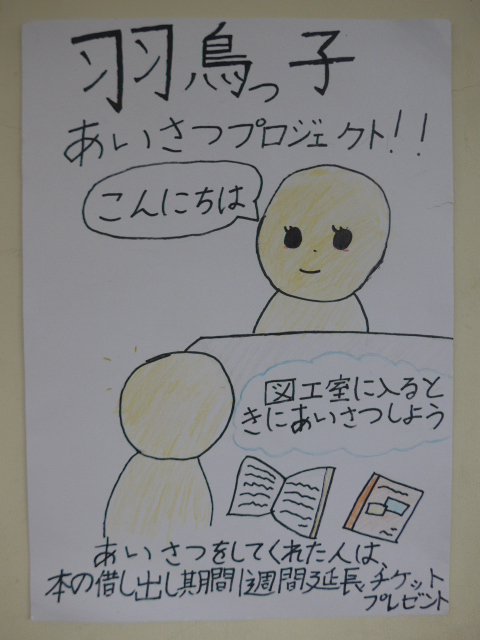 羽鳥っ子
あいさつプロジェクト!!
こんにちは
図工室に入ると
きにあいさつしよう
あいさつをしてくれた人は、
本の借し出し期間1週間延長チケット
プレゼント